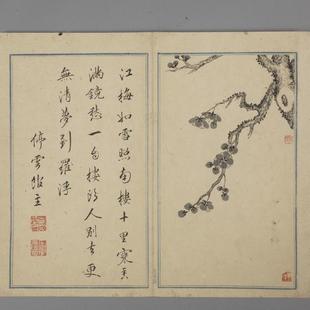 江梅如雪照南樓十里寒香
滿鏡愁一自樓頭人別去更
無清夢到羅浮
雲 主